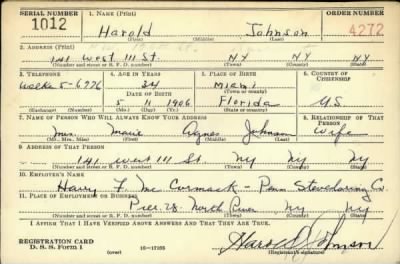 SERIAL NUMBER 1. NAME (Print) ORDER NUMBER
1012 Harold Johnson 4272
(First) (Middle) (Last)
2. ADDRESS (Print)
141 West 111 St. NY NY
(Number and street or R. F. D. number) (Town) (County) (State)
3. TELEPHONE 4. AGE IN YEARS 5. PLACE OF BIRTH 6. COUNTRY OF CITIZENSHIP
5-6776 34 Miami
DATE OF BIRTH (Town or county)
5 11 1906 Florida US
(Exchange) (Number) (Mo.) (Day) (Yr.) (State or country)
7. NAME OF PERSON WHO WILL ALWAYS KNOW YOUR ADDRESS 8. RELATIONSHIP OF THAT PERSON
Mrs. Marie Agnes Johnson Wife
(Mr., Mrs., Miss) (First) (Middle) (Last)
9. ADDRESS OF THAT PERSON
141 West 111 St. NY NY NY
(Number and street or R. F. D. number) (Town) (County) (State)
10. EMPLOYER'S NAME
Harry F. McCormack - Penn Stevedoring Co.
11. PLACE OF EMPLOYMENT OR BUSINESS
Pier 28 North River NY NY
(Number and street or R. F. D. number) (Town) (County) (State)
I AFFIRM THAT I HAVE VERIFIED ABOVE ANSWERS AND THAT THEY ARE TRUE.
REGISTRATION CARD
D. S. S. FORM 1 (over) 16-17105 Harold Johnson
(Registrant's signature)